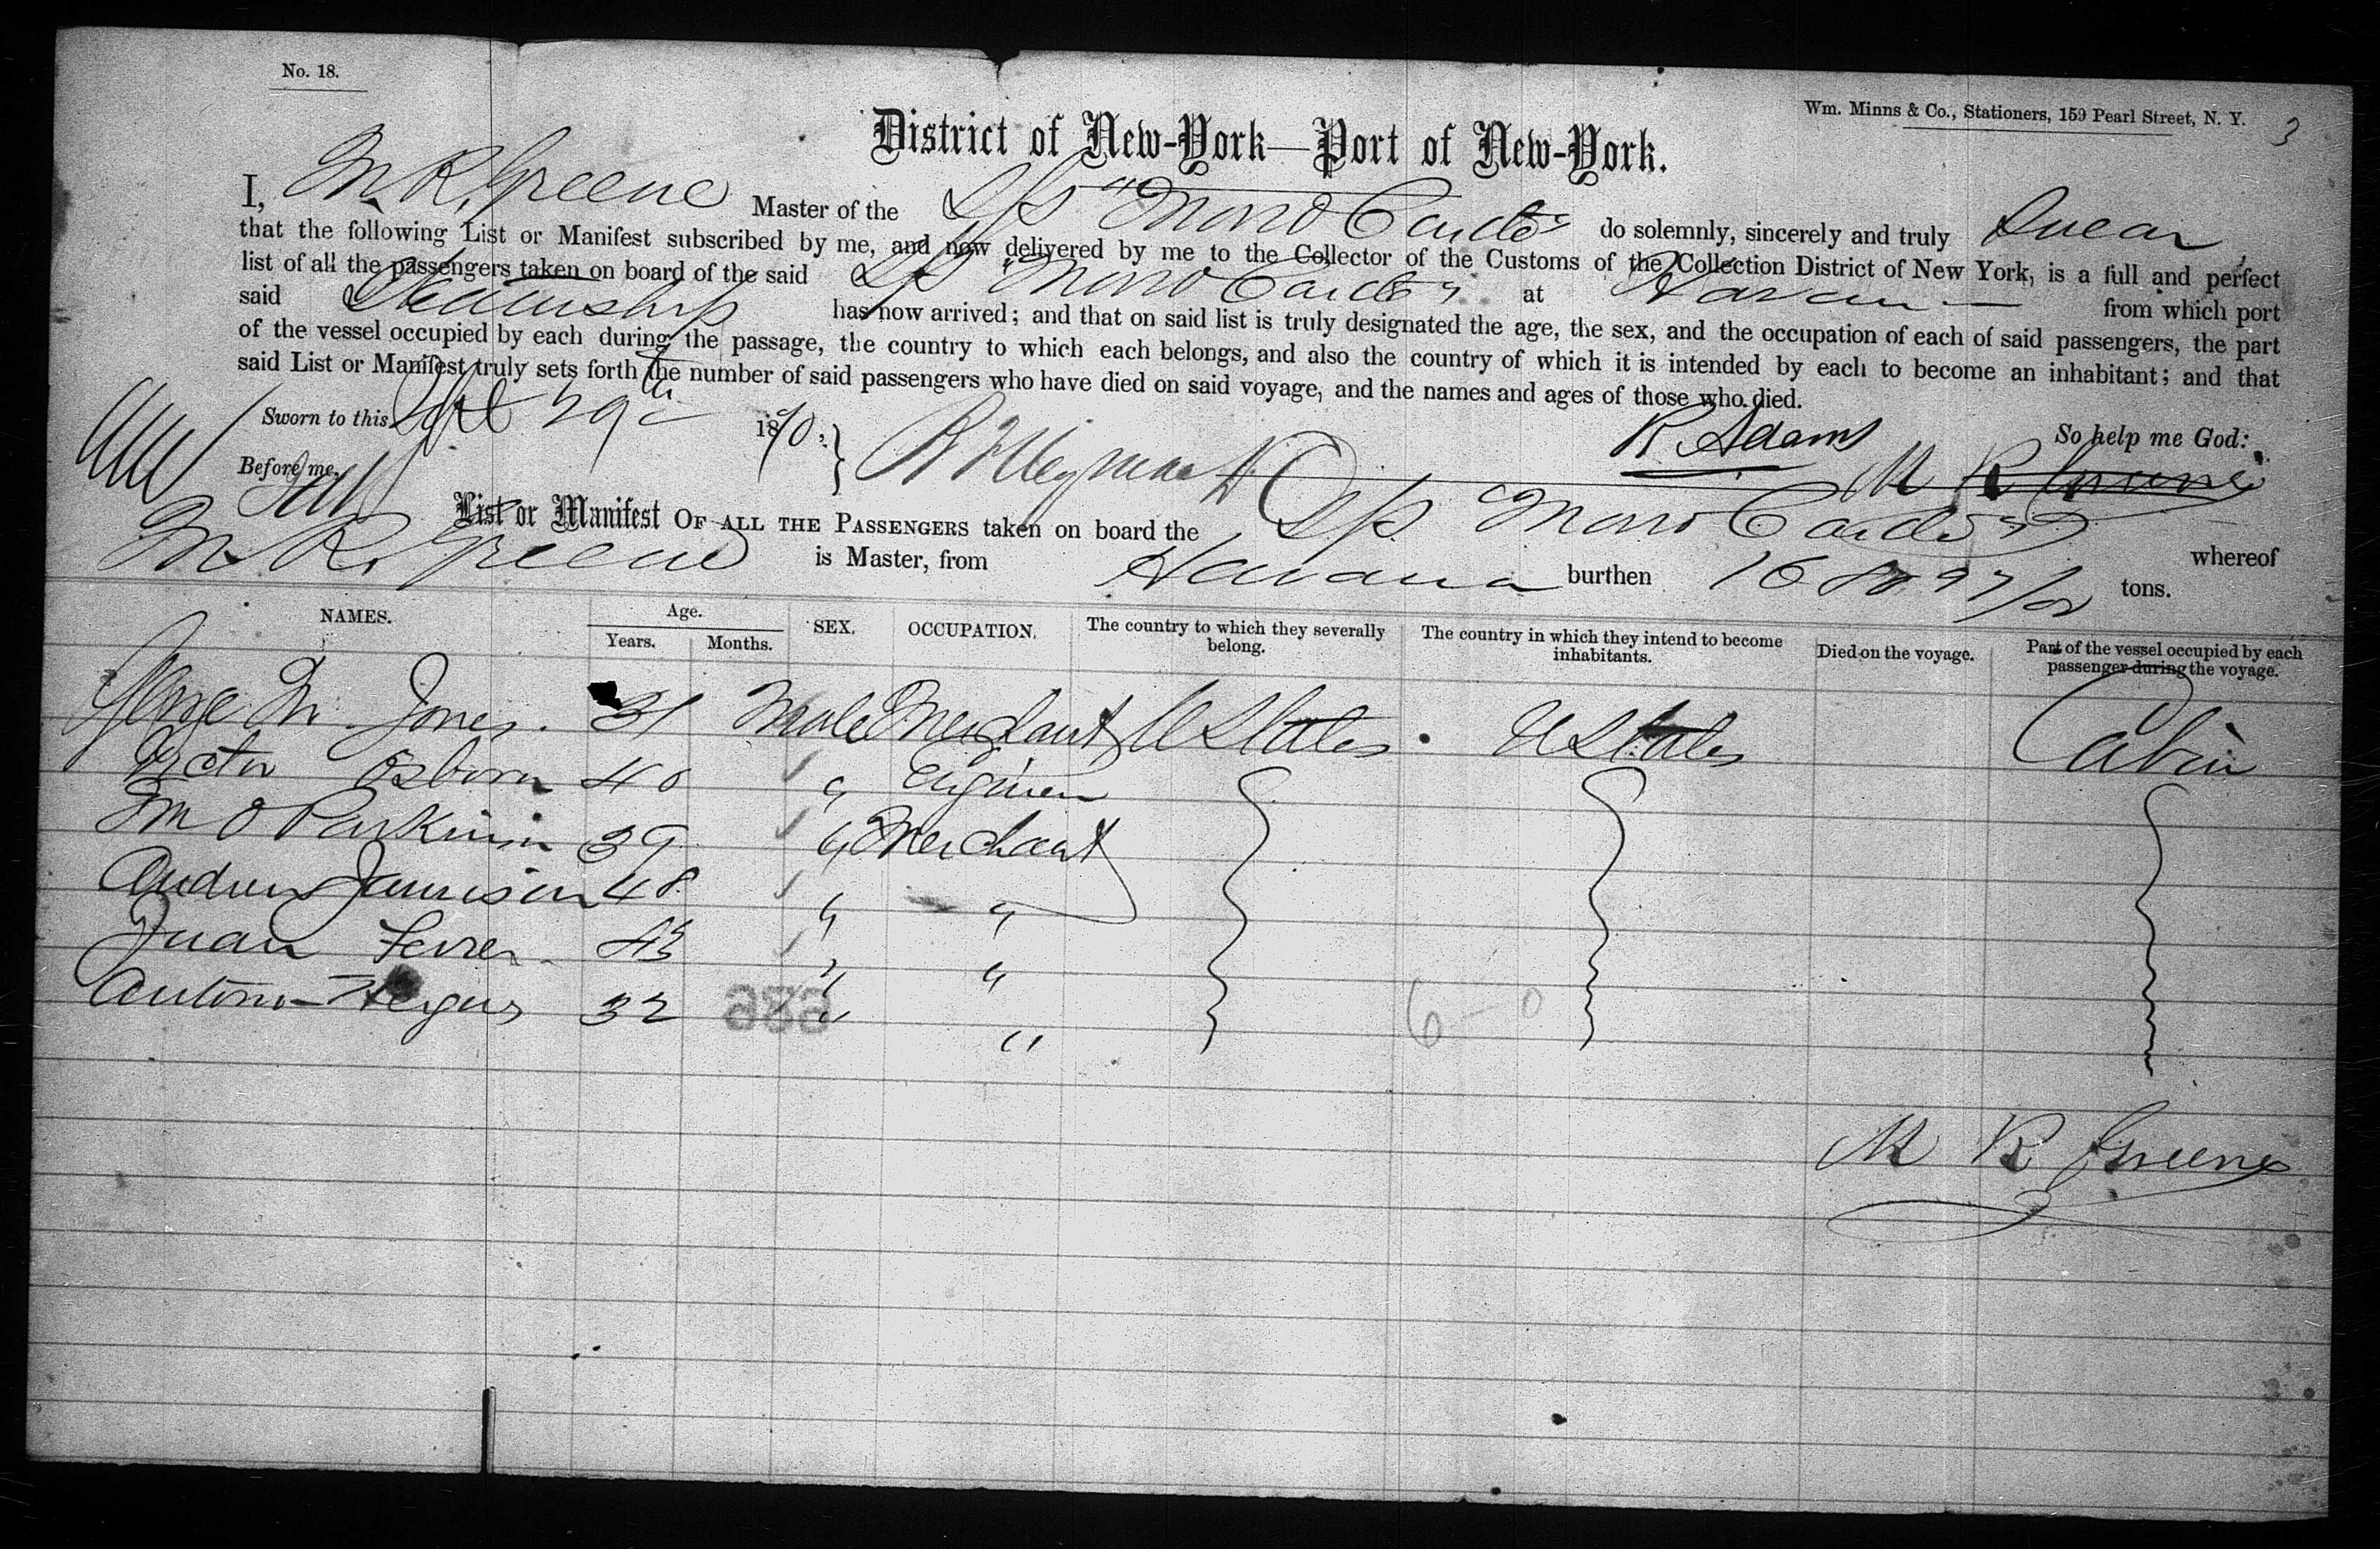 No. 18.
Wm. Minns & Co., Stationers, 159 Pearl Street, N. Y.
3
District of New-York—Port of New-York.
I, M. R. Greene Master of the S/S "Morro Castle" do solemnly, sincerely and truly Swear
that the following List or Manifest subscribed by me, and now delivered by me to the Collector of the Customs of the Collection District of New York, is a full and perfect
list of all the passengers taken on board of the said S/S "Morro Castle" at Havana from which port
said Steamship has now arrived; and that on said list is truly designated the age, the sex, and the occupation of each of said passengers, the part
of the vessel occupied by each during the passage, the country to which each belongs, and also the country of which it is intended by each to become an inhabitant; and that
said List or Manifest truly sets forth the number of said passengers who have died on said voyage, and the names and ages of those who died.
Sworn to this Sept 29th 1870,
R Adams
So help me God:
Before me,
M R Greene
List or Manifest OF ALL THE PASSENGERS taken on board the S/S "Morro Castle" whereof
M. R. Greene is Master, from Havana burthen 1680 97/ tons.
NAMES. Age. SEX. OCCUPATION. The country to which they severally belong. The country in which they intend to become inhabitants. Died on the voyage. Part of the vessel occupied by each passenger during the voyage.
Years. Months.
George M. Jones. 31 Male Merchant U States U States Cabin
Victor Osborn 40 " Engineer
M O Parkinson 39 " Merchant
Andrew Jamieson 48 " "
Juan Ferrer 43 " "
Antonio 32 " "
989
6-0
M R Greene